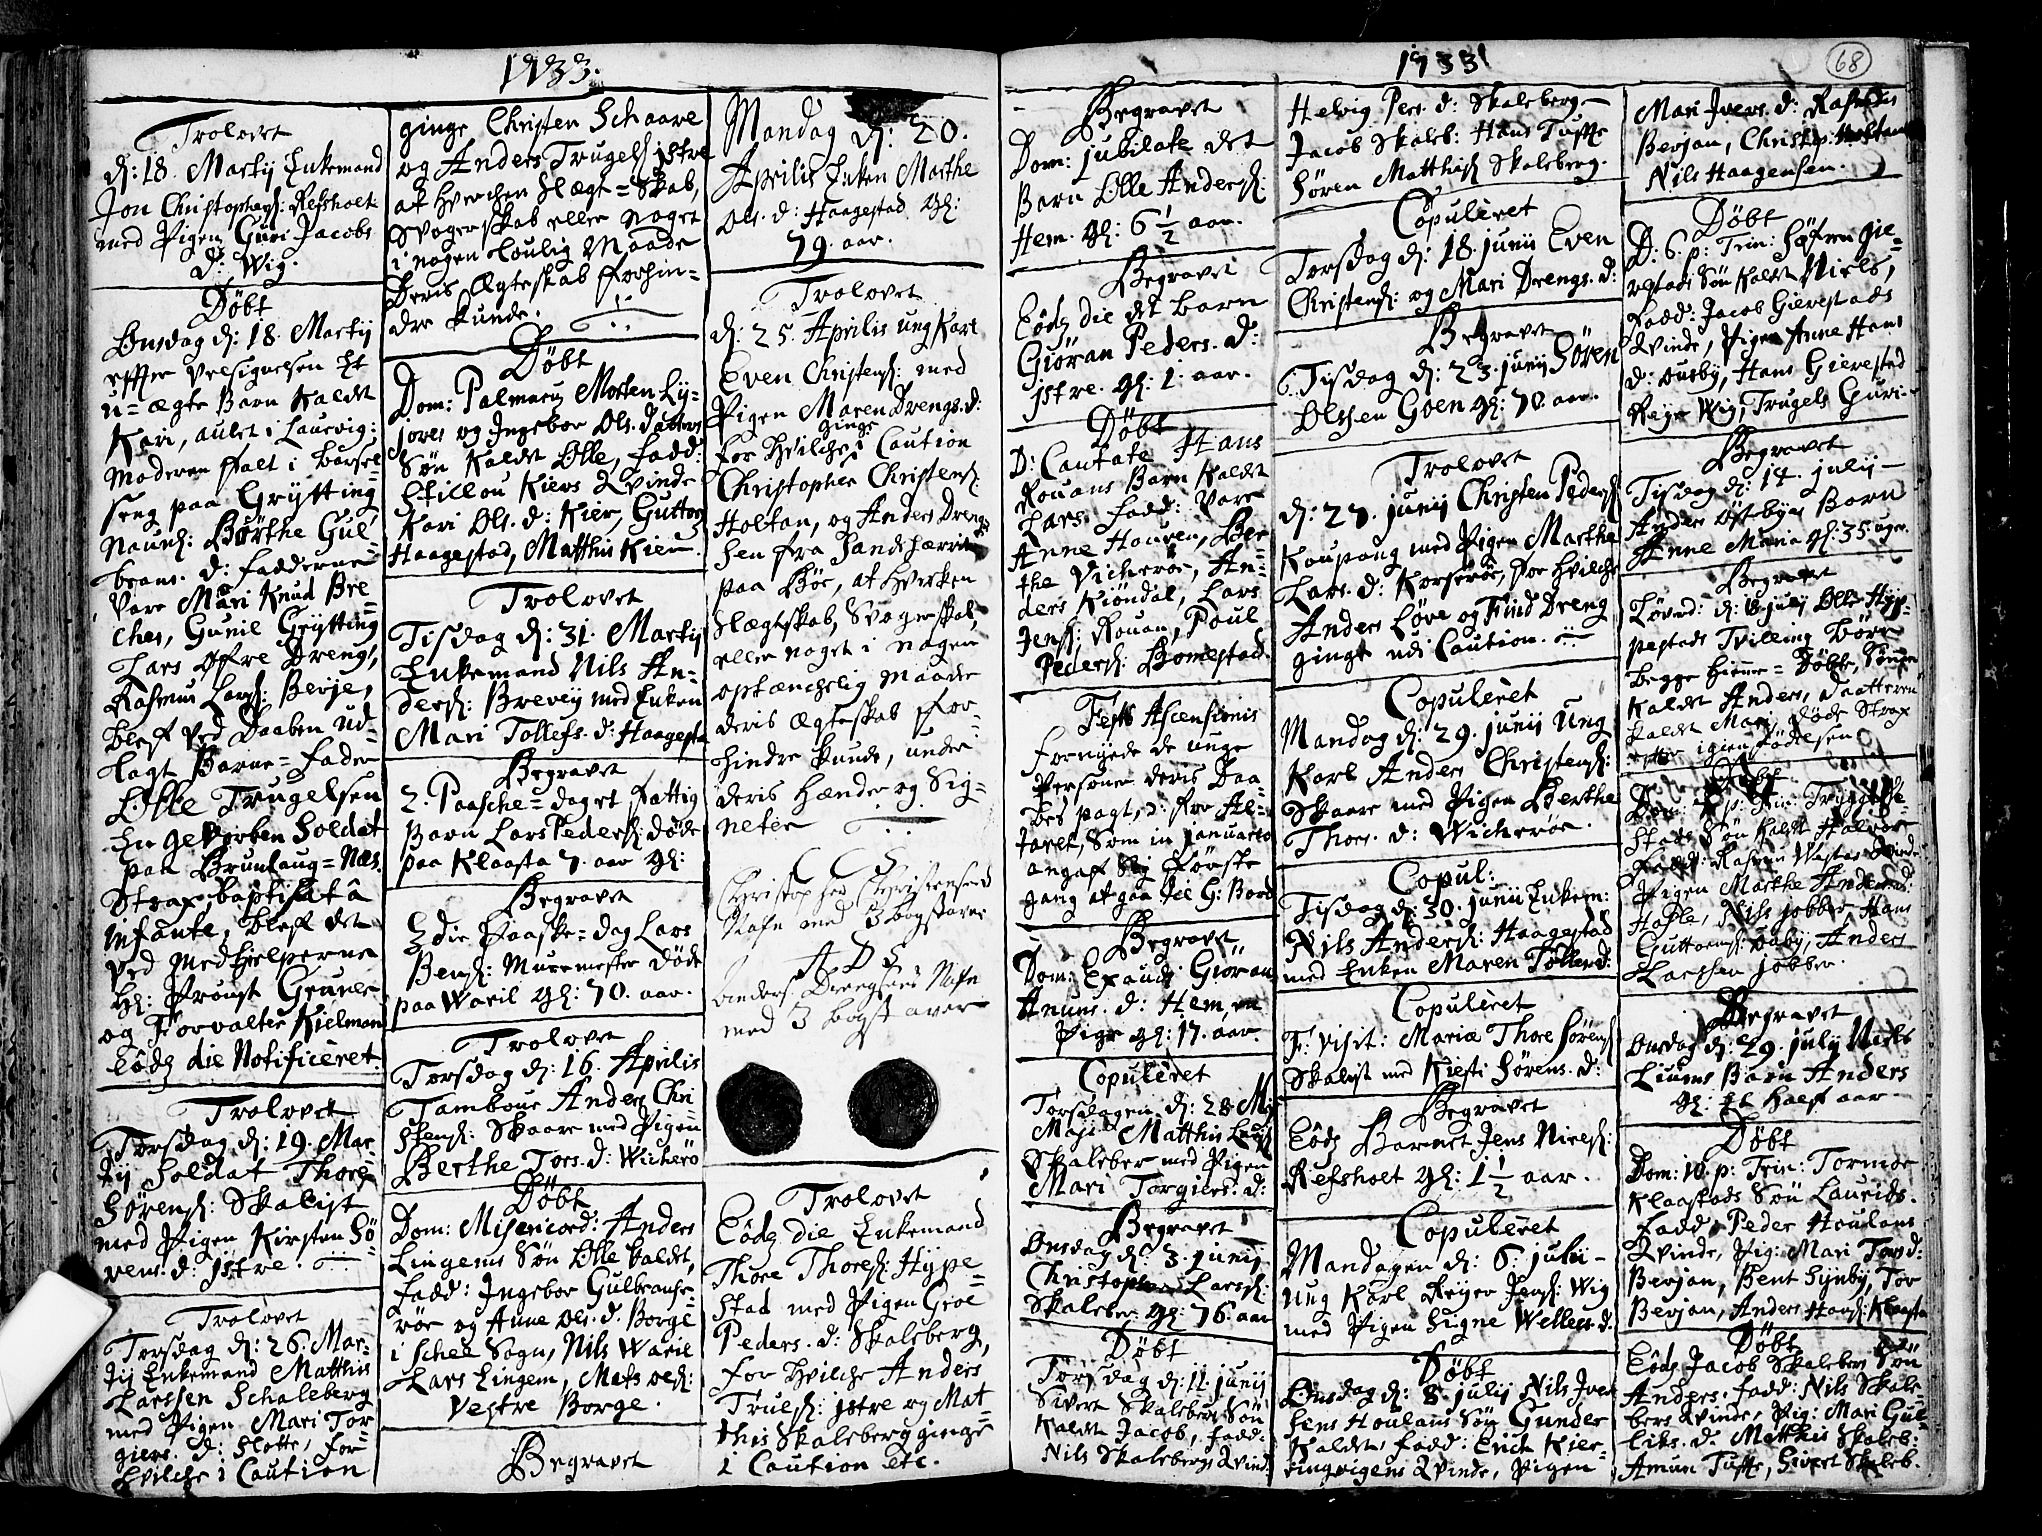 1733.
Trolovet
d: 18. Martij Enkemand
Jon Christophers: Refsholt
med Pigen Guri Jacobs
d: Wig.
Døbt
Onsdag d: 18. Martij
efter velsignelsen Et
u=ægte Barn kaldt
Kari, aulet i Laurvig:
Moderen falt i Barsel
seng paa Grÿtting
Naunl: Børthe Gul=
brans. d: fadderne
vare Mari Knud Bre=
ches, Gunil Grÿtting
Lars Øfre Dreng,
Rasmus Lars: Berje,
blef ved Daaben ud=
lagt Barne=fader
Olle Trugelsen
En geworben Soldat
paa Brunlaug=Næs.
Strax baptisatâ
infante, blef det
ved Medhielperne
Hr: Provst Gruner
og Forvalter Kielman
Eôdem die Notificeret.
Trolovet
Torsdag d: 19. Mar=
tij Soldat Thore
Sørens: Skalist
med Pigen Kirsten Sö=
rens. d: jstre.
Trolovet
Torsdag d: 26. Mar=
tij Enkemand Matthis
Larssen Schaleberg
med Pigen Mari Tor=
giers. d: Slotte, for
hvilche i Caution
ginge Christen Schaare
og Anders Trugels: jstre
at hverchen Slægt=Skab,
Svogerskab eller noget
i nogen Loulig Maade
Deris Ægteskab forhin=
dre kunde.
Døbt
Dom: Palmarum Morten Ly=
jores og Ingebor Ols. Datters
Søn kaldt Olle, fadd:
Kiers Qvinde
Kari Ols. d: Kier, Guttorm
Haagestad, Matthis Kier.
Trolovet
Tisdag d: 31. Martij
Enkemand Nils An=
ders: Brevej med Enken
Mari Tollefs. d: Haagesta
Begravet
2. Paasche=dag et fattig
Barn Lars Peders: døde
paa Klaasta 7. aar gl:
Begravet
3die Paaske=dag Lars
Bens: Muremester døde
paa Waril gl: 70. aar.
Trolovet
Torsdag d: 16. Aprilis
Tambour Anders Chri
stens: Skaare med Pigen
Berthe Tors. d: Wicherö
Døbt
Dom: Misericord: Anders
Lingems Søn Olle kaldt,
fadd: Ingebor Gulbranse=
röe og Anne Ols. d. Borge
i Schee Sogn, Nils Waril
Lars Lingem, Mats
Vestre Borge.
Begravet
Mandag d: 20.
Aprilis Enken Marthe
Ols. d: Haagestad gl:
79. aar.
Trolovet
d: 25. Aprilis ung Karl
Even Christens: med
Pigen Maren Drengs. d:
for hvilche ginge i Caution
Christopher Christens:
Holtan, og Anders Dreng
sen fra Sandshærrit
paa Böe, at hverken
slægtskab, Svogerskab,
eller noget i nogen
optænchelig maade
deris ægteskab for=
hindre kunde, under
deris hænder og Sig=
neter
C C S
Christopher Christensens
Nafn med 3 bogstaver
A D S
Anders Drengsens Nafn
med 3 bogstaver
Trolovet
Eôdem die Enkemand
Thore Thores: Hÿpe=
stad med Pigen Groe
Peders. d: Skalsberg,
for hvilche Anders
Truels: jstre og Mat=
this Skalsberg ginge
i Caution etc.
1733
68
Begravet
Dom: jubilate det
Barn Olle Anders:
Hem. gl: 6 1/2 aar.
Begravet
Eôdem die det barn
Giöran Peders. d:
jstre. gl: 1. aar.
Døbt
D: Cantate Hans
Rouans Barn kaldt
Lars. fadd: vare
Anne Houven, Ber=
the Vicheröe, An=
ders Kiöndal, Lars
Jenss: Rouan, Poul
Peders: Bomestad.
Festo Ascensionis
fornÿede de unge
Personer deris Daa
bes pagt, d: fre Al=
taret, Som in januario
angaf Sig Förste
gang at gaa til G: Bord
Begravet
Dom: Exaudi Giöran
Amuns. d: Hem, en
Pige gl: 17. aar.
Copuleret
Torsdagen d: 28 Maj
Matthis Lars:
Skaleber med Pigen
Mari Torgiers. d:
Begravet
Onsdag d: 3. junij
Christopher Larss:
Skaleber gl: 76. aar
Døbt
Torsdag d: 11. junij
Sivert Skalsbergs Søn
kaldt Jacob, fadd:
Nils Skalsbergs Qvinde
Helvig Pers. d: Skalsberg
Jacob Skaleb: Hans Tuffte
Sören Matthis: Skaleberg.
Copuleret
Torsdag d: 18. junij Even
Christens: og Mari Drengs. d:
Begravet
Tisdag d: 23. junij Sören
Olssen Goen gl: 70. aar.
Trolovet
d: 27. junij Christen Peders:
Kaupang med Pigen Marthe
Lars. d: Korseröe, for hvilche
Anders Löve og Find Dreng
gingt udi Caution.
Copuleret
Mandag d: 29. junij Ung
Karl Anders Christens:
Skaare med Pigen Berthe
Thors. d: Wicheröe.
Copul:
Tisdag d: 30. junij Enkem:
Nils Anders: Haagestad
med Enken Maren Tollevs d:
Copuleret
F: visit: Mariæ Thore Sörens:
Skalist med Kiesti Sörens. d:
Begravet
Eôdem Barnet Jens Niels:
Refsholt gl: 1 1/2 aar.
Copuleret
Mandagen d: 6. julii
Ung Karl Reÿer Jens: Wig
med Pigen Signe Wellers. d.
Døbt
Onsdag d: 8. julij Nils Iver
sens Houlans Søn Gunder
kaldt, fadd: Erich Kier=
ringvigens Qvinde, Pigen
Mari Ivers. d: Rasmus
Berjan, Christop: Holtan
Nils Haagensen.
Døbt
D: 6. p: Trin: Söfren Gie=
restads Søn kaldt Niels,
Fadd: Jacob Gierestads
Qvinde, Pigen Anne Hans
d: Ousby, Hans Gierestad
Reÿer Wig, Trugels Guri
Begravet
Tisdag d: 14. julij
Anders Østbys Barn
Anne Maria gl: 35. uger.
Begravet
Löverd: d: julij Olle Hÿp=
pestads Tvilling Børn
begge hjemme=Döbte, Sønnen
kaldt Anders, Daatteren
kaldt Mari, døde Strax
efter igien födelsen
Døbt
p: Trin: Trygg
stads Søn kaldt Halvor
Fadd: Rasmus Wastas Qvinde
Pigen Marthe Anders d:
Hafle, Nils jobber, Hans
Guttorms: Anders
Larssen jobber.
Begravet
Onsdag d: 29. julij
Liums Barn Anders
gl: Et halft aar.
Døbt
Dom: 10. p: Trin: Tormoe
Klaastads Søn Laurids.
Fadd: Peder Houlans
Qvinde, Pig: Mari Torsd:
Berjan, Bent Sÿnbÿ, Tor
Berjan, Anders Hans: Klaasta
Døbt
Eôdem Jacob Skalsbergs Søn
Anders. fadd: Nils Skals=
bers Qvinde, Pig: Mari Gul=
liks. d. Matthis Skaleb:
Amun Tuffte, Sivert Skaleb.